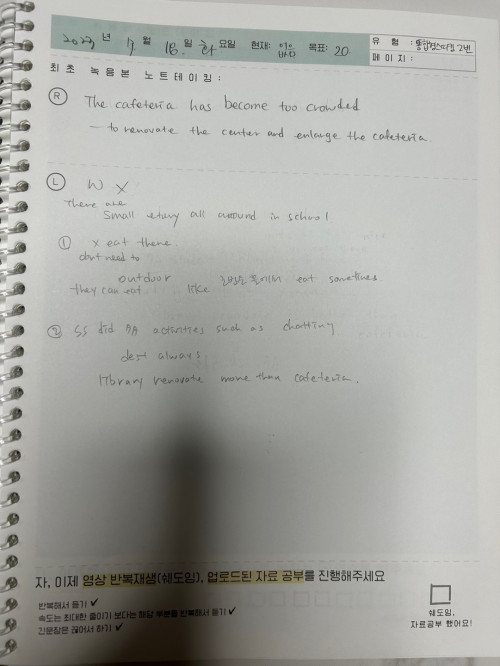 2023 년 7 월 18 일 화 요일 현재: 목표: 20 유 형 : 통합
페 이 지 :
최 초 녹 음 본 노 트 테 이 킹 :
Ⓡ The cafeteria has become too crowded
– to renovate the center and enlarge the cafeteria
Ⓛ W X
There are
small all around in school
① x eat there.
dont need to
outdoor eat sometimes
they can eat like
② SS did activities such as chatting
always
library renovate more than cafeteria.
자, 이제 영상 반복재생(쉐도잉), 업로드된 자료 공부를 진행해주세요
반복해서 듣기 ✓
속도는 최대한 줄이기 보다는 해당 부분을 반복해서 듣기 ✓
긴문장은 끊어서 하기 ✓
쉐도잉,
자료공부 했어요!